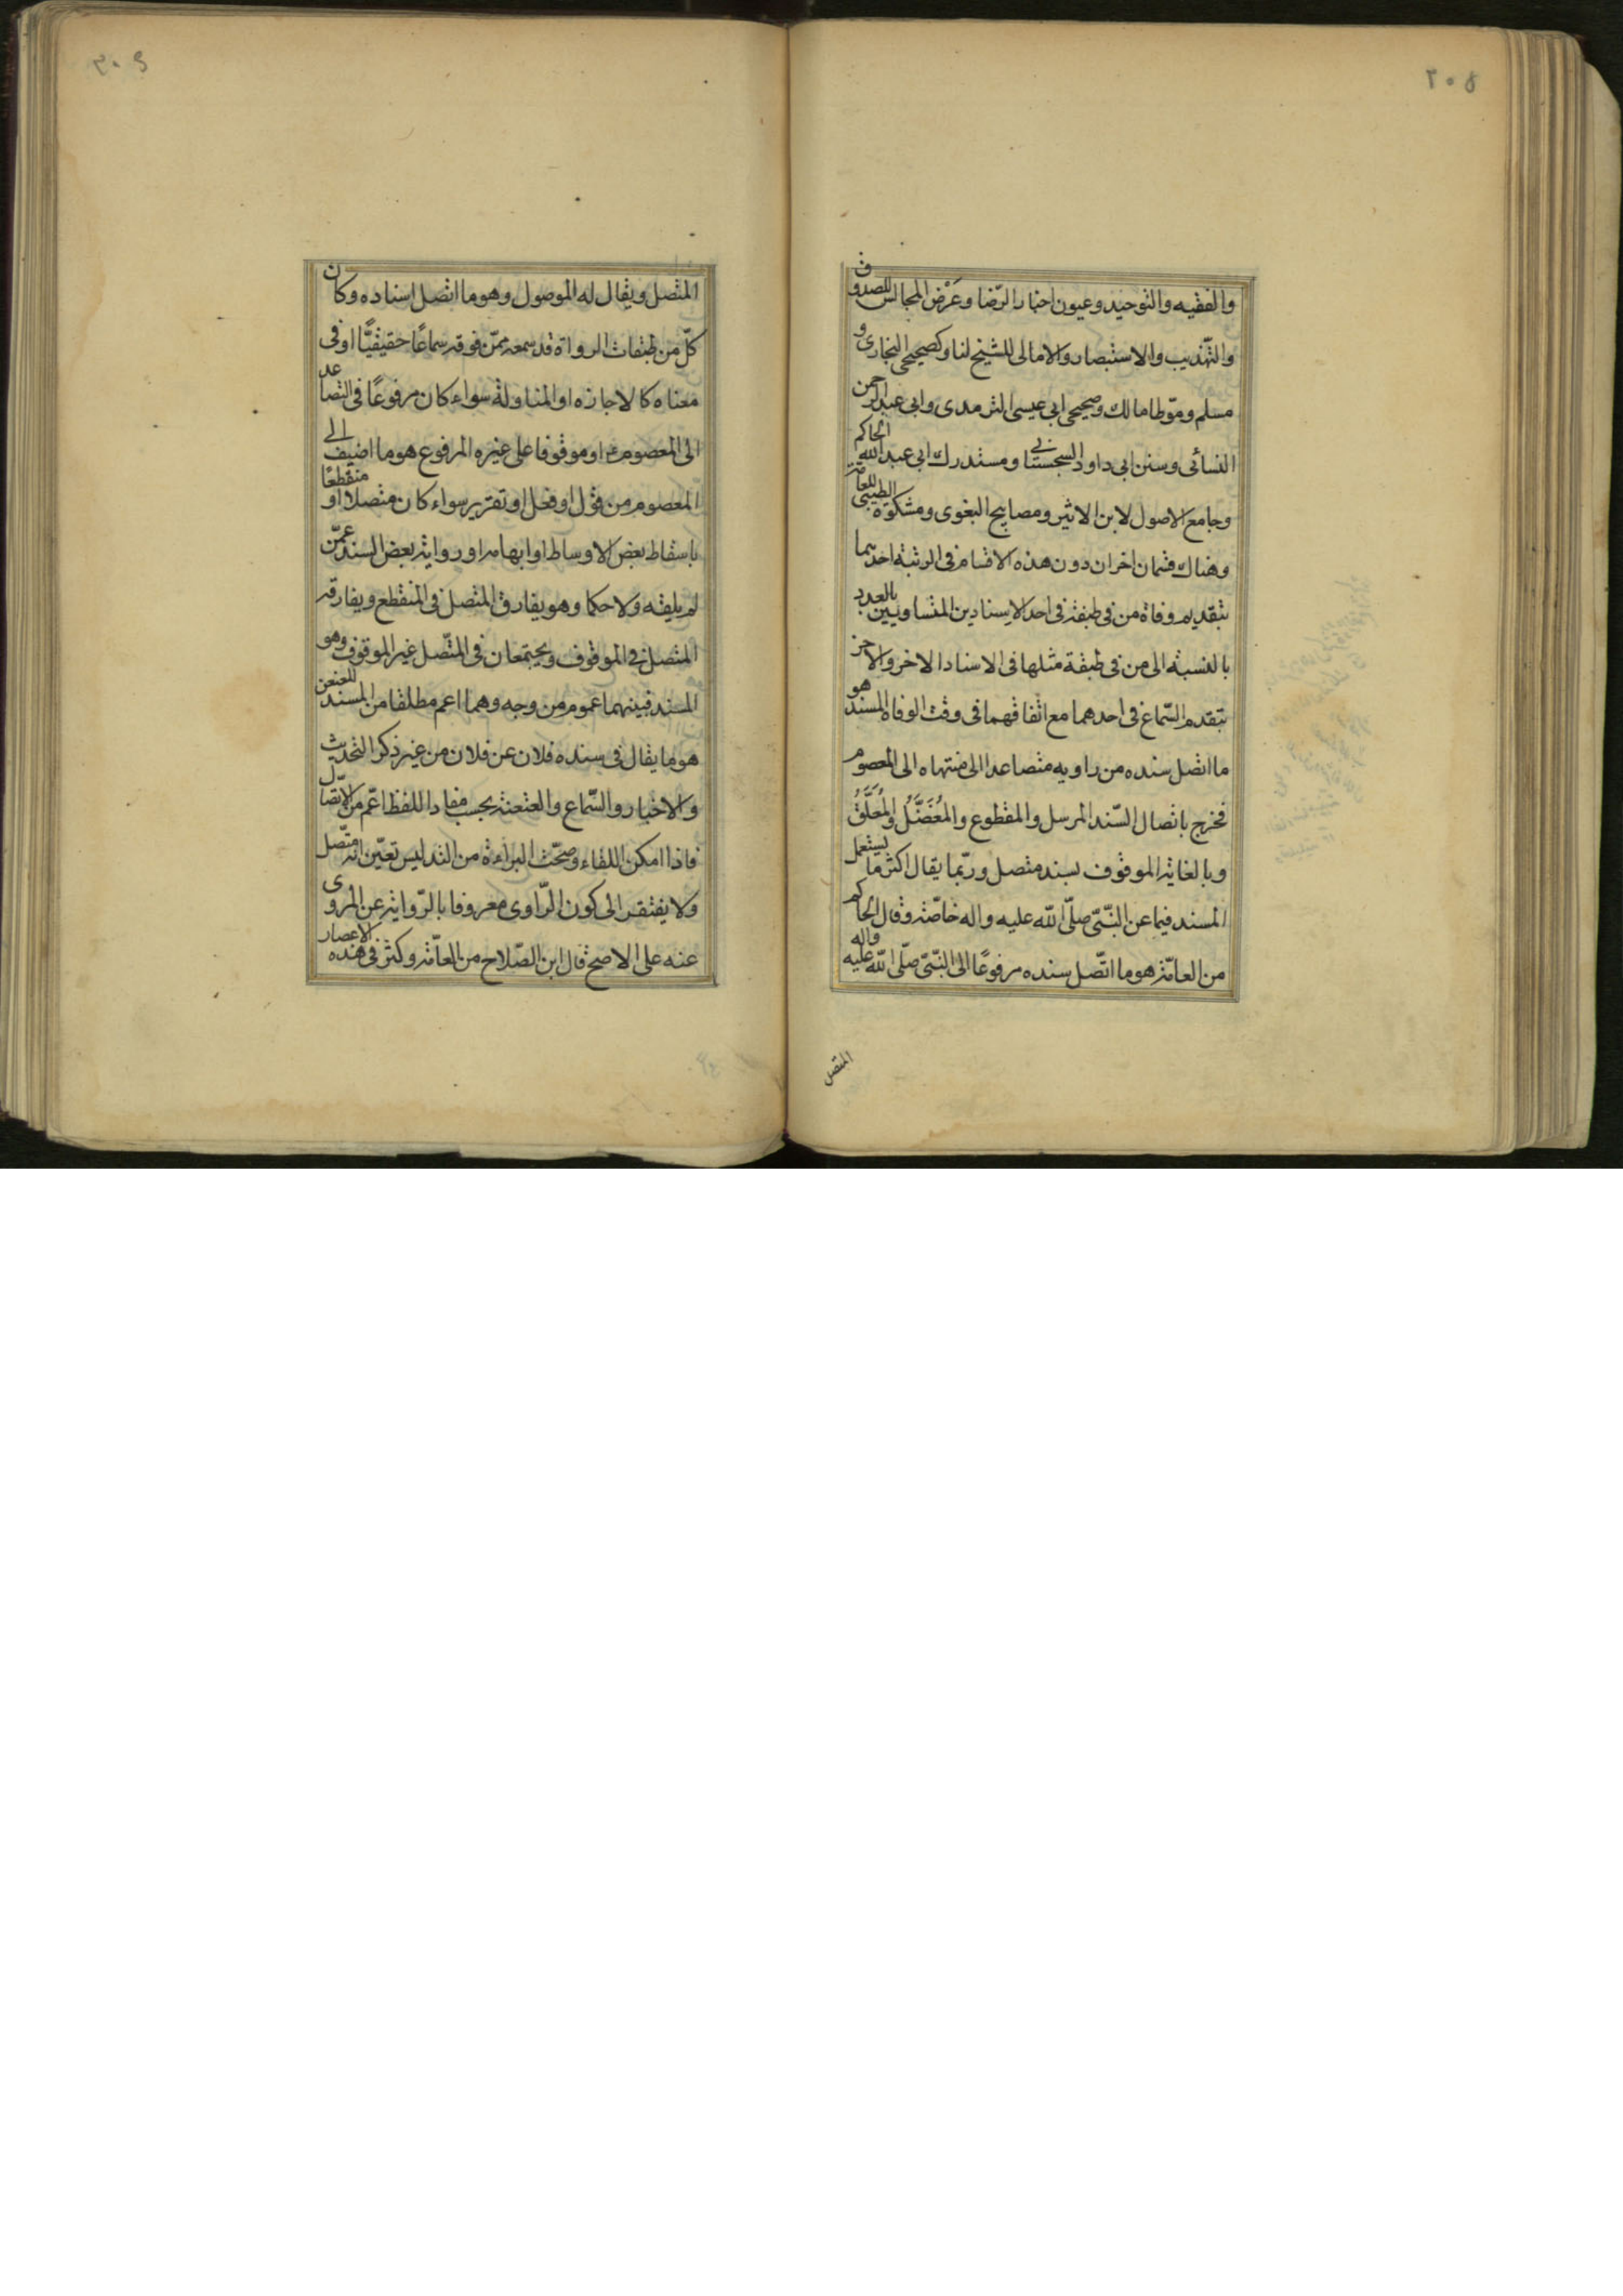 ٢٠٨
والفقيه والتوحيد وعيون اخبار الرّضا وعَرْض المجالس للصدوق
والتّهذيب والاستبصار والامالى للشيخ لنا وكصحيحى البخارى و
مسلم وموّطا مالك وصحيحى ابى عيسى الترمدى وابى عبد الرحمن
النسائى وسنن ابى داود السجستانى ومستدرك ابى عبد الله الحاكم
وجامع الاصول لابن الاثير ومصابيح البغوى ومشكوة الطيبى للعامة
وهناك قسمان اخران دون هذه الاقسام فى الرتبة احدهما
بتقديم وفاة من فى طبقة فى احد الاسنادين المتساويين بالعدد
بالنسبة الى من فى طبقة مثلها فى الاسناد الاخر والاخر
بتقدم السّماع فى احدهما مع اتفاقهما فى وقت الوفاة المسند هو
ما اتصل سنده من راويه متصاعدا الى منتهاه الى المعصوم
فخرج باتصال السّند المرسل والمقطوع والمُعْضَل والمُعَلَّقُ
وبالغاية الموقوف بسند متصل وربّما يقال اكثر ما يستعمل
المسند فيما عن النّبىّ صلّى اللّه عليه واله خاصّة وقال الحاكم
من العامّة هو ما اتّصل سنده مرفوعًا الى النّبىّ صلّى اللّه عليه واله
المتصل
٢٠٩
المتصل ويقال له الموصول وهو ما اتصل اسناده وكان
كلّ من طبقات الرواة قد سمعه ممّن فوقه سماعًا حقيقيًّا او فى
معناه كالاجازه او المناولة سواء كان مرفوعًا فى التصاعد
الى المعصوم او موقوفا على غيره المرفوع هو ما اضيف الى
المعصوم من قول او فعل او تقرير سواء كان متصلا او منقطعًا
باسقاط بعض الاوساط او ابهامه او رواية بعض السند عمّن
لم يلقه ولا حكما وهو يفارق المتصل فى المنقطع ويفارقه
المتصل فى الموقوف ويجتمعان فى المتّصل غير الموقوف وهو
المسند فبينهما عموم من وجه وهما اعم مطلقا من المسند المعنعن
هو ما يقال فى سنده فلان عن فلان من غير ذكر التحديث
والاخبار والسّماع والعنعنة بحسب مفاد اللفظ اعّم من الاتّصال
فاذا امكن اللقاء وصحّت البراءة من التدليس تعيّن انه متّصل
ولا يفتقر الى كون الرّاوى معروفا بالرّواية عن المروى
عنه على الاصح قال ابن الصّلاح من العامّة وكثر فى هذه الاعصار